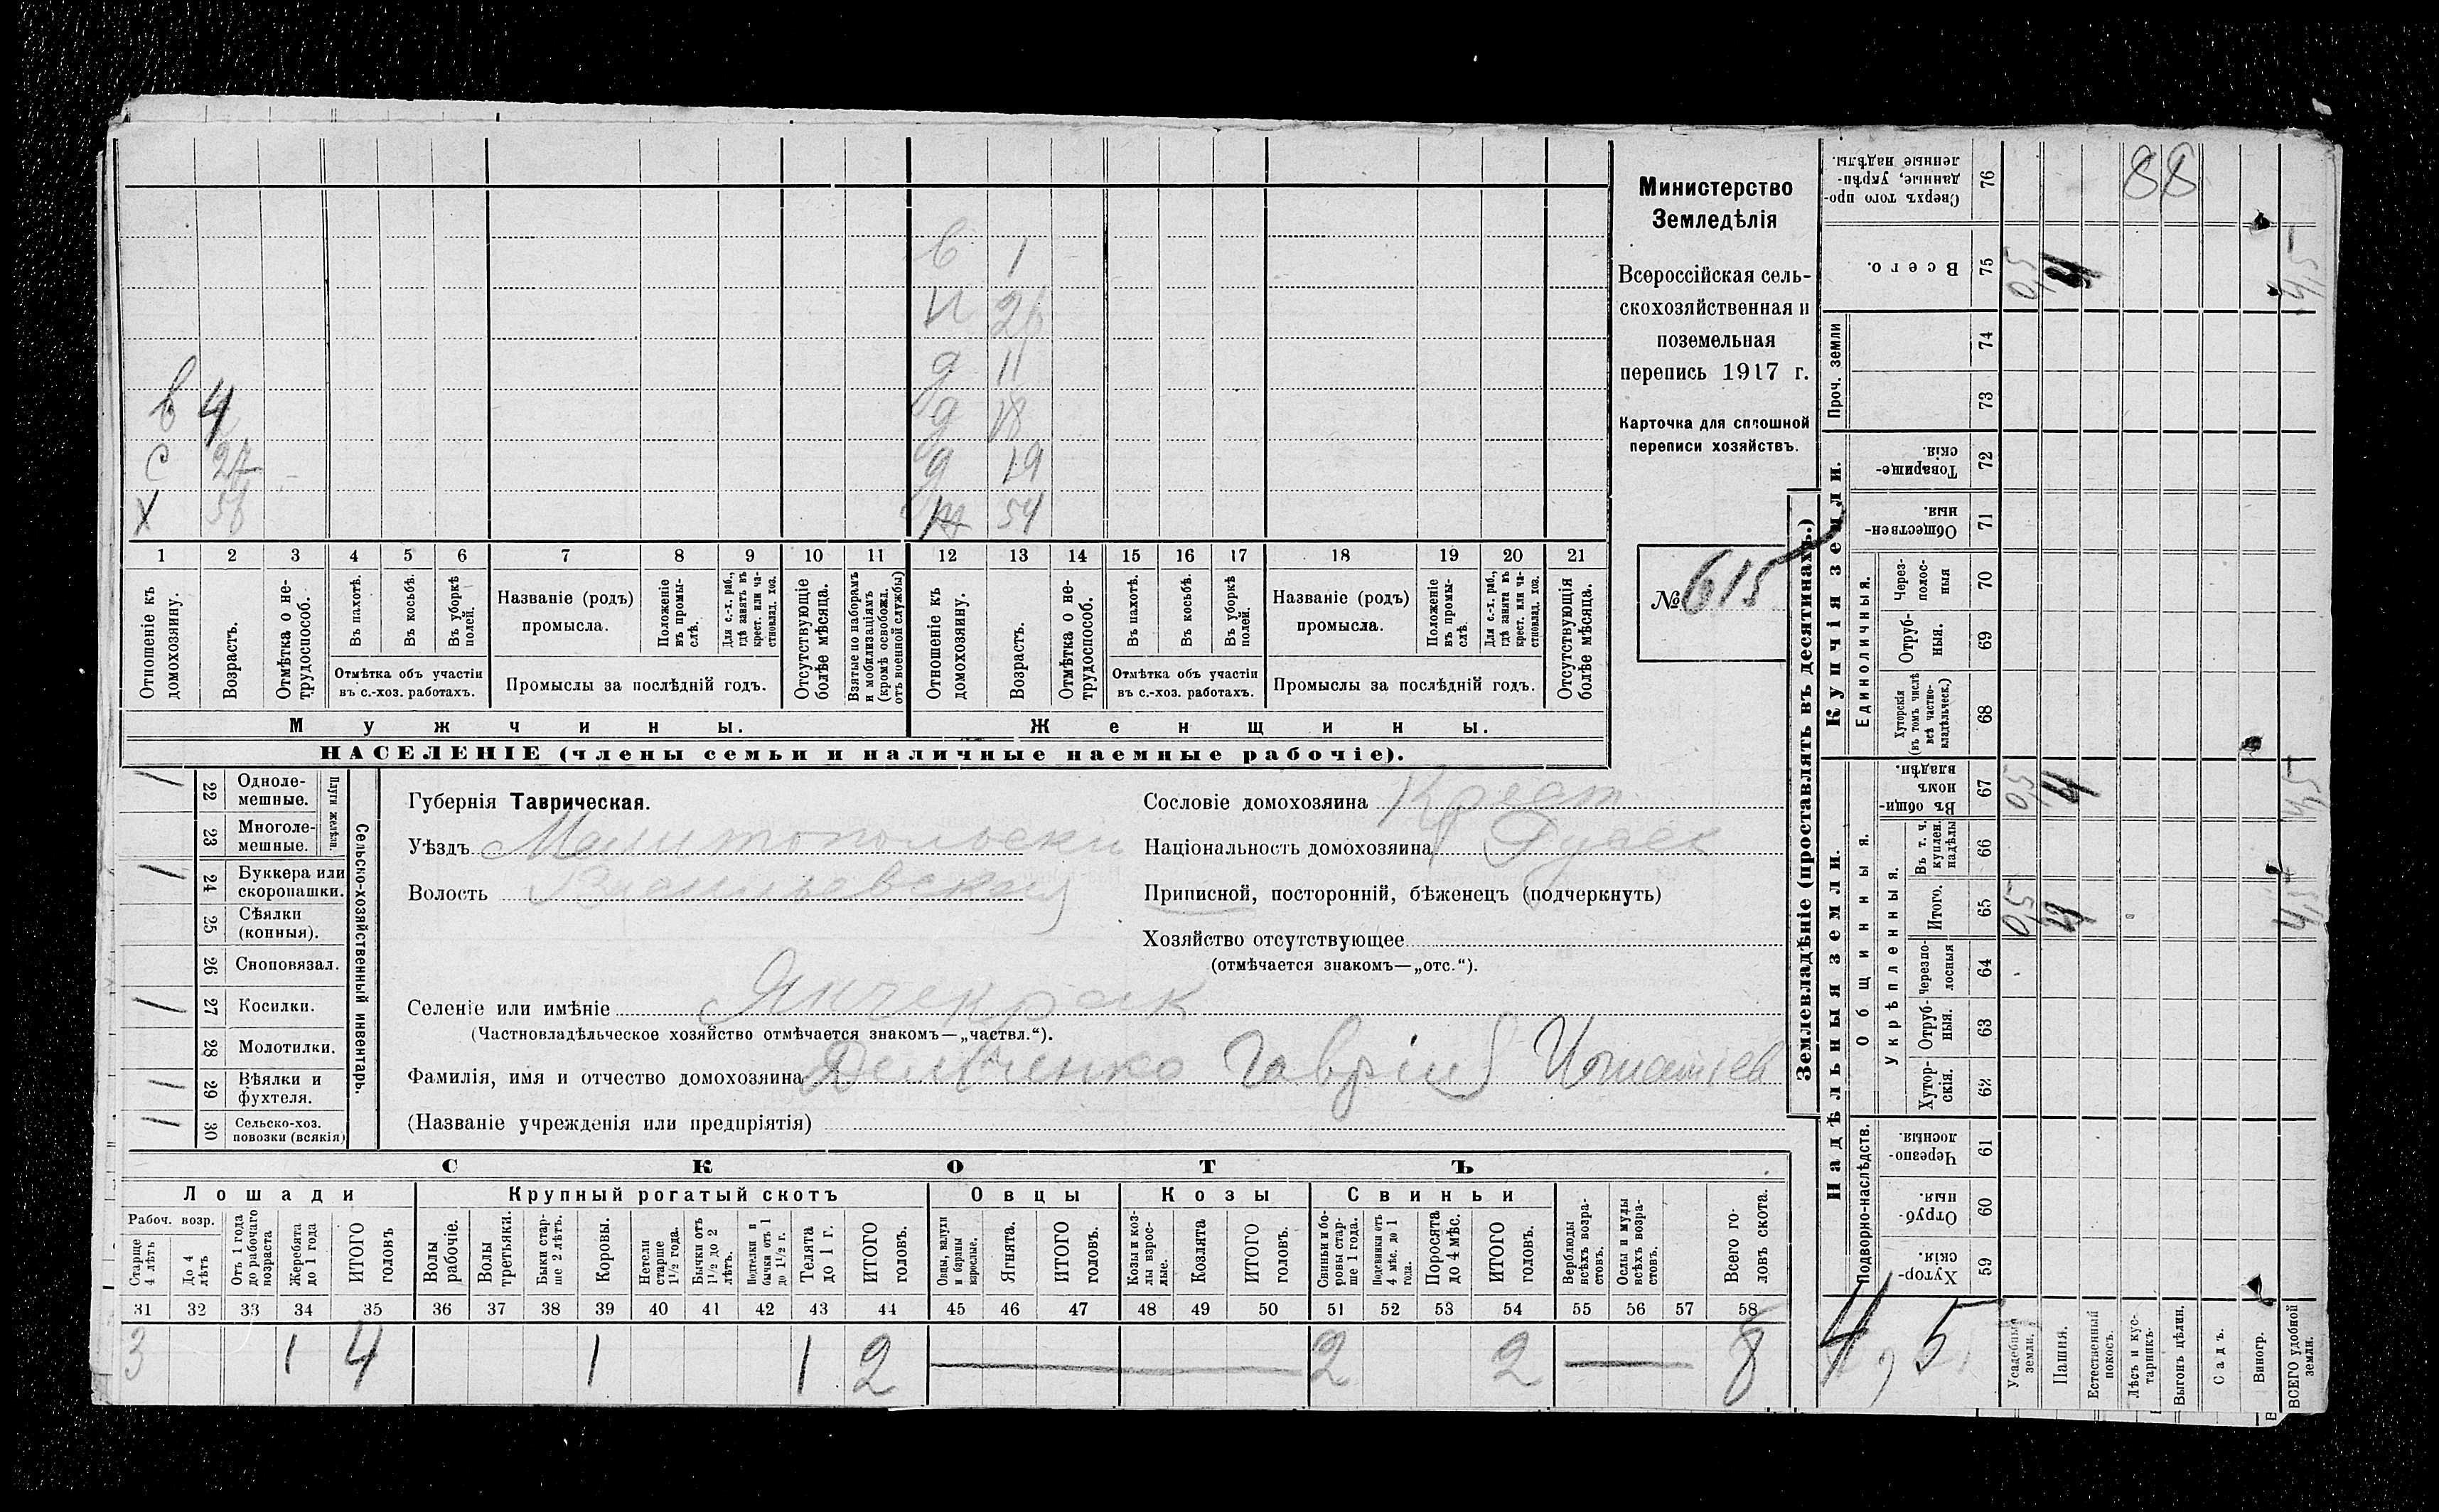 в 1
и 26
д 11
в 4 д 18
с 27 д 19
х 58 ж 54
1 2 3 4 5 6 7 8 9 10 11 12 13 14 15 16 17 18 19 20 21
Отношеніе къ домохозяину.
Возрастъ.
Отмѣтка о не-трудоспособ.
Въ пахотѣ.
Въ косьбѣ.
Въ уборкѣ полей.
Отмѣтка объ участіи въ с.-хоз. работахъ.
Названіе (родъ) промысла.
Положеніе въ промы-слѣ.
Для с.-х. раб., гдѣ занятъ въ крест. или ча-стновлад. хоз.
Промыслы за послѣдній годъ.
Отсутствующіе болѣе мѣсяца.
Взятые по наборамъ и мобилизаціямъ (кромѣ освобожд. отъ военной службы)
Отношеніе къ домохозяину.
Возрастъ.
Отмѣтка о не-трудоспособ.
Въ пахотѣ.
Въ косьбѣ.
Въ уборкѣ полей.
Отмѣтка объ участіи въ с.-хоз. работахъ.
Названіе (родъ) промысла.
Положеніе въ промы-слѣ.
Для с.-х. раб., гдѣ занята въ крест. или ча-стновлад. хоз.
Промыслы за послѣдній годъ.
Отсутствующія болѣе мѣсяца.
Мужчины.
Женщины.
НАСЕЛЕНІЕ (члены семьи и наличные наемные рабочіе).
Министерство
Земледѣлія
Всероссійская сель-
скохозяйственная и
поземельная
перепись 1917 г.
Карточка для сплошной
переписи хозяйствъ.
№ 615
1 22 Одноле-мешные.
23 Многоле-мешные.
Плуги желѣзн.
1 24 Буккера или скоропашки.
25 Сѣялки (конныя).
26 Сноповязал.
1 27 Косилки.
28 Молотилки.
1 29 Вѣялки и фухтеля.
1 30 Сельско-хоз. повозки (всякія)
Сельско-хозяйственный инвентарь.
Губернія Таврическая.
Уѣздъ Мелитопольскій
Волость Васильевская
Селеніе или имѣніе Янчекрак
(Частновладѣльческое хозяйство отмѣчается знакомъ—„частвл.“).
Фамилія, имя и отчество домохозяина Демченко Гавріил Игнатіев
(Названіе учрежденія или предпріятія)
Сословіе домохозяина Крест.
Національность домохозяина
Приписной, посторонній, бѣженецъ (подчеркнуть)
Хозяйство отсутствующее
(отмѣчается знакомъ—„отс.“).
СКОТЪ
Лошади Крупный рогатый скотъ Овцы Козы Свиньи
Рабоч. возр.
Старше 4 лѣтъ
До 4 лѣтъ
Отъ 1 года до рабочаго возраста
Жеребята до 1 года
ИТОГО головъ
Волы рабочіе.
Волы третьяки.
Быки стар-ше 2 лѣтъ.
Коровы.
Нетели старше 1½ года.
Бычки отъ 1½ до 2 лѣтъ.
Подтелки и бычки отъ 1 до 1½ г.
Телята до 1 г.
ИТОГО головъ.
Овцы, валухи и бараны взрослые.
Ягнята.
ИТОГО головъ.
Козы и коз-лы взрос-лые.
Козлята
ИТОГО головъ.
Свиньи и бо-ровы стар-ше 1 года.
Подсвинки отъ 4 мѣс. до 1 года.
Поросята до 4 мѣс.
ИТОГО головъ.
Верблюды всѣхъ возра-стовъ.
Ослы и мулы всѣхъ возра-стовъ.
Всего го-ловъ скота.
31 32 33 34 35 36 37 38 39 40 41 42 43 44 45 46 47 48 49 50 51 52 53 54 55 56 57 58
3 1 4 1 1 2 — 2 2 — 8
Землевладѣніе (проставлять въ десятинахъ.)
Купчія земли.
Надѣльныя земли.
Сверхъ того про-данные, укрѣп-ленные надѣлы. 76 88
Всего. 75 0,5 4 4,5
Проч. земли 74
73
Товарище-скія. 72
Обществен-ныя. 71
Единоличныя.
Через-полос-ныя 70
Отруб-ныя. 69
Хуторскія (въ томъ числѣ всѣ частно-владѣльческ.) 68
Общинныя.
Въ общин-номъ владѣн. 67 0,5 4 4,5
Укрѣпленныя.
Въ т. ч. куплен. надѣлы 66
Итого. 65 0,5 4,5
Черезпо-лосныя 64
Отруб-ныя. 63
Хутор-скія. 62
Подворно-наслѣдств.
Черезпо-лосныя. 61
Отруб-ныя. 60
Хутор-скія. 59
4,5
Усадебныя земли.
Пашня.
Естественный покосъ.
Лѣсъ и кус-тарникъ.
Выгонъ цѣлин.
Садъ.
Виногр.
ВСЕГО удобной земли.